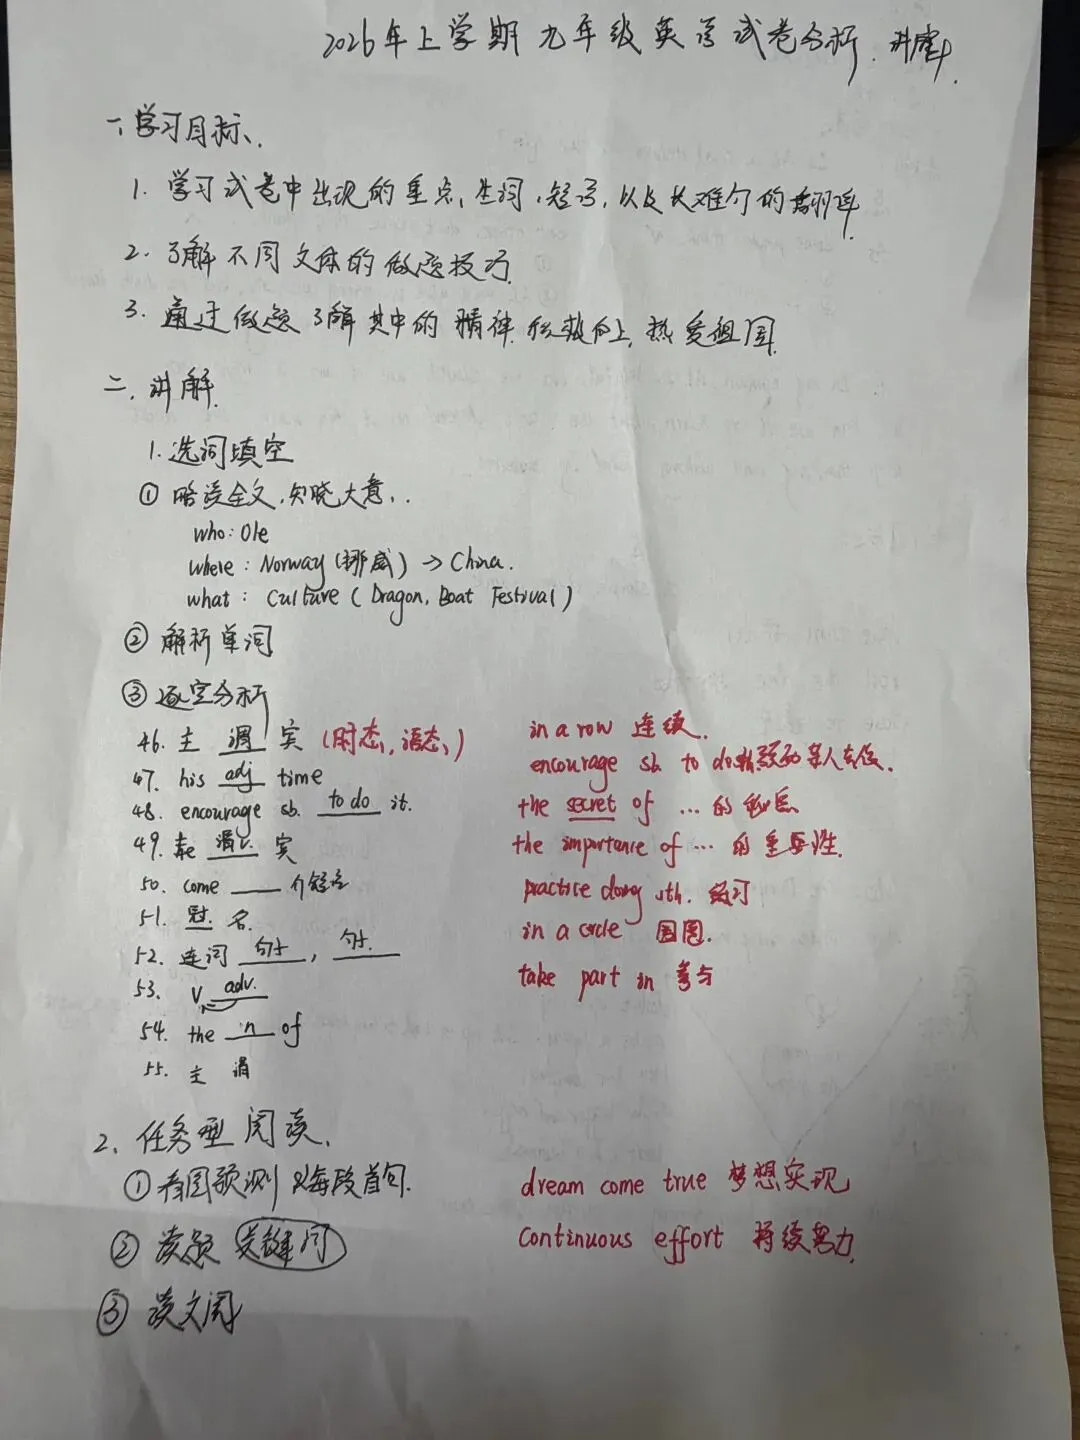 2026年上学期九年级英语试卷分析.讲座
一、学习目标、
1. 学习试卷中出现的重点、生词、短语,以及长难句的翻译
2. 了解不同文体的做题技巧.
3. 通过做题了解其中的精神.积极向上,热爱祖国.
二. 讲解.
1. 选词填空
① 略读全文,知晓大意..
who: Ole
where: Norway (挪威) → China.
what: Culture (Dragon, Boat Festival)
② 解析单词
③ 逐空分析
46. 主 谓 宾 (时态, 语态,)
47. his adj time
48. encourage sb. to do it.
49. 谓v. 宾
50. come ____ 介短语
51. 冠. 名.
52. 连词 句子, 句子.
53. v. adv.
54. the n of
55. 主 谓
in a row 连续.
encourage sb. to do 鼓励某人去做.
the secret of ... 的秘密
the importance of ... 的重要性.
practice doing sth. 练习
in a circle 圆圈.
take part in 参与
2. 任务型阅读.
① 看图预测 及每段首句.
② 读题 关键词
③ 读文周
dream come true 梦想实现
Continuous effort 持续努力.